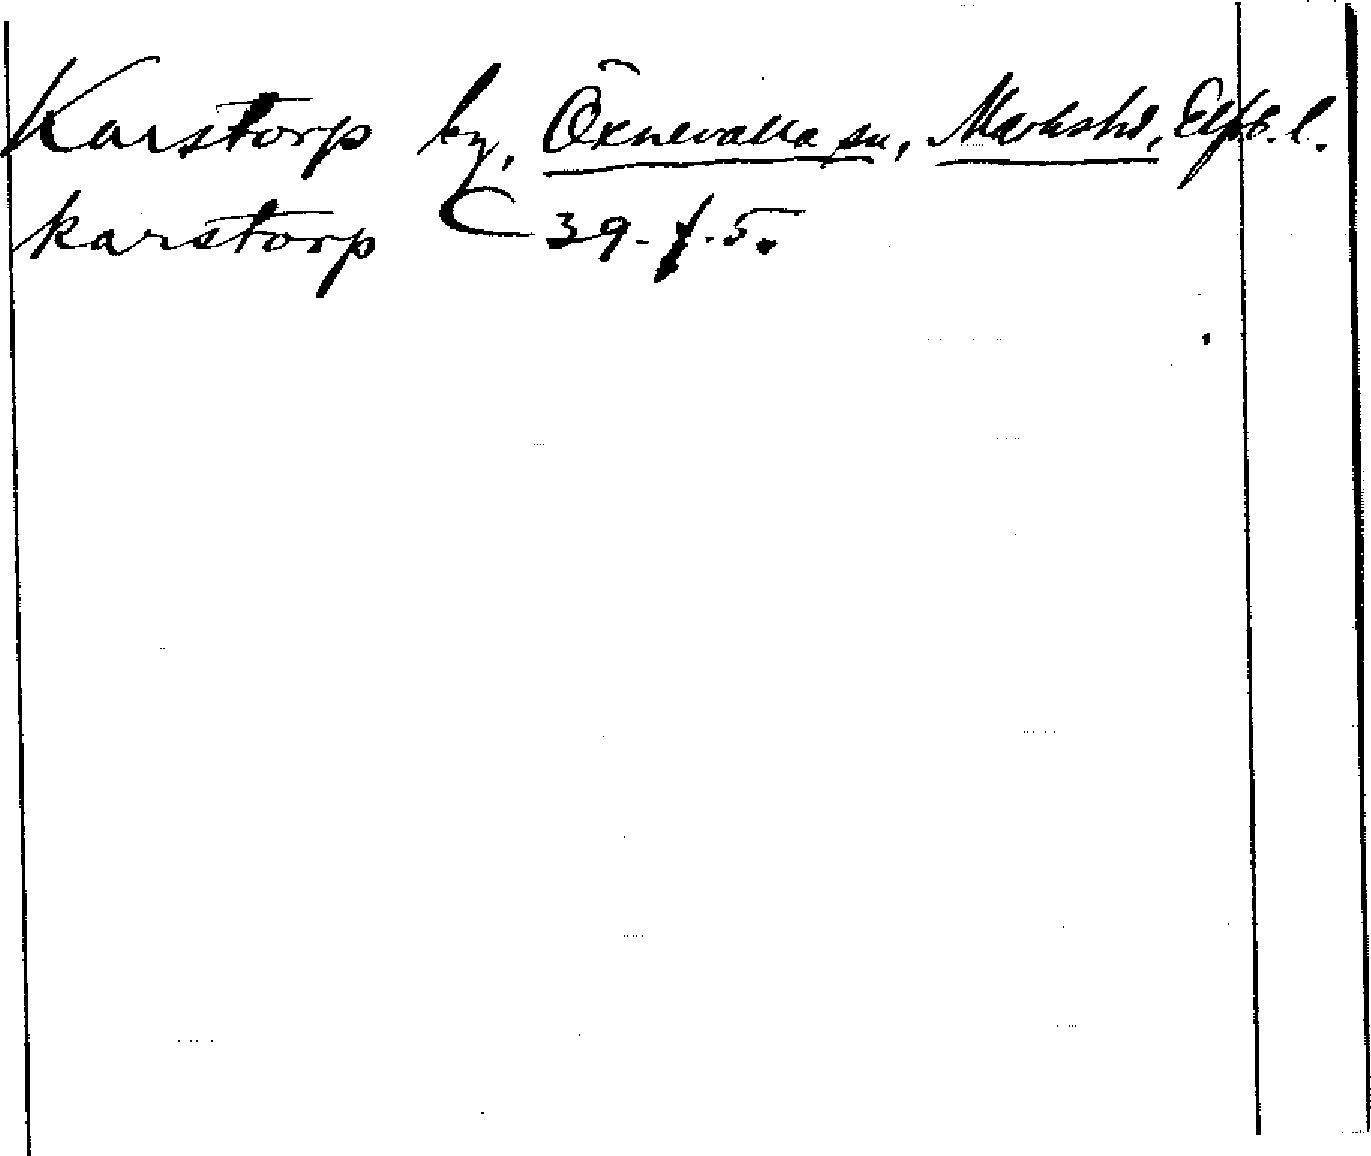 Karstorp by, Öxnevalla sn, Markshd, Elfsb. l.
karstorp C 39-f.5.